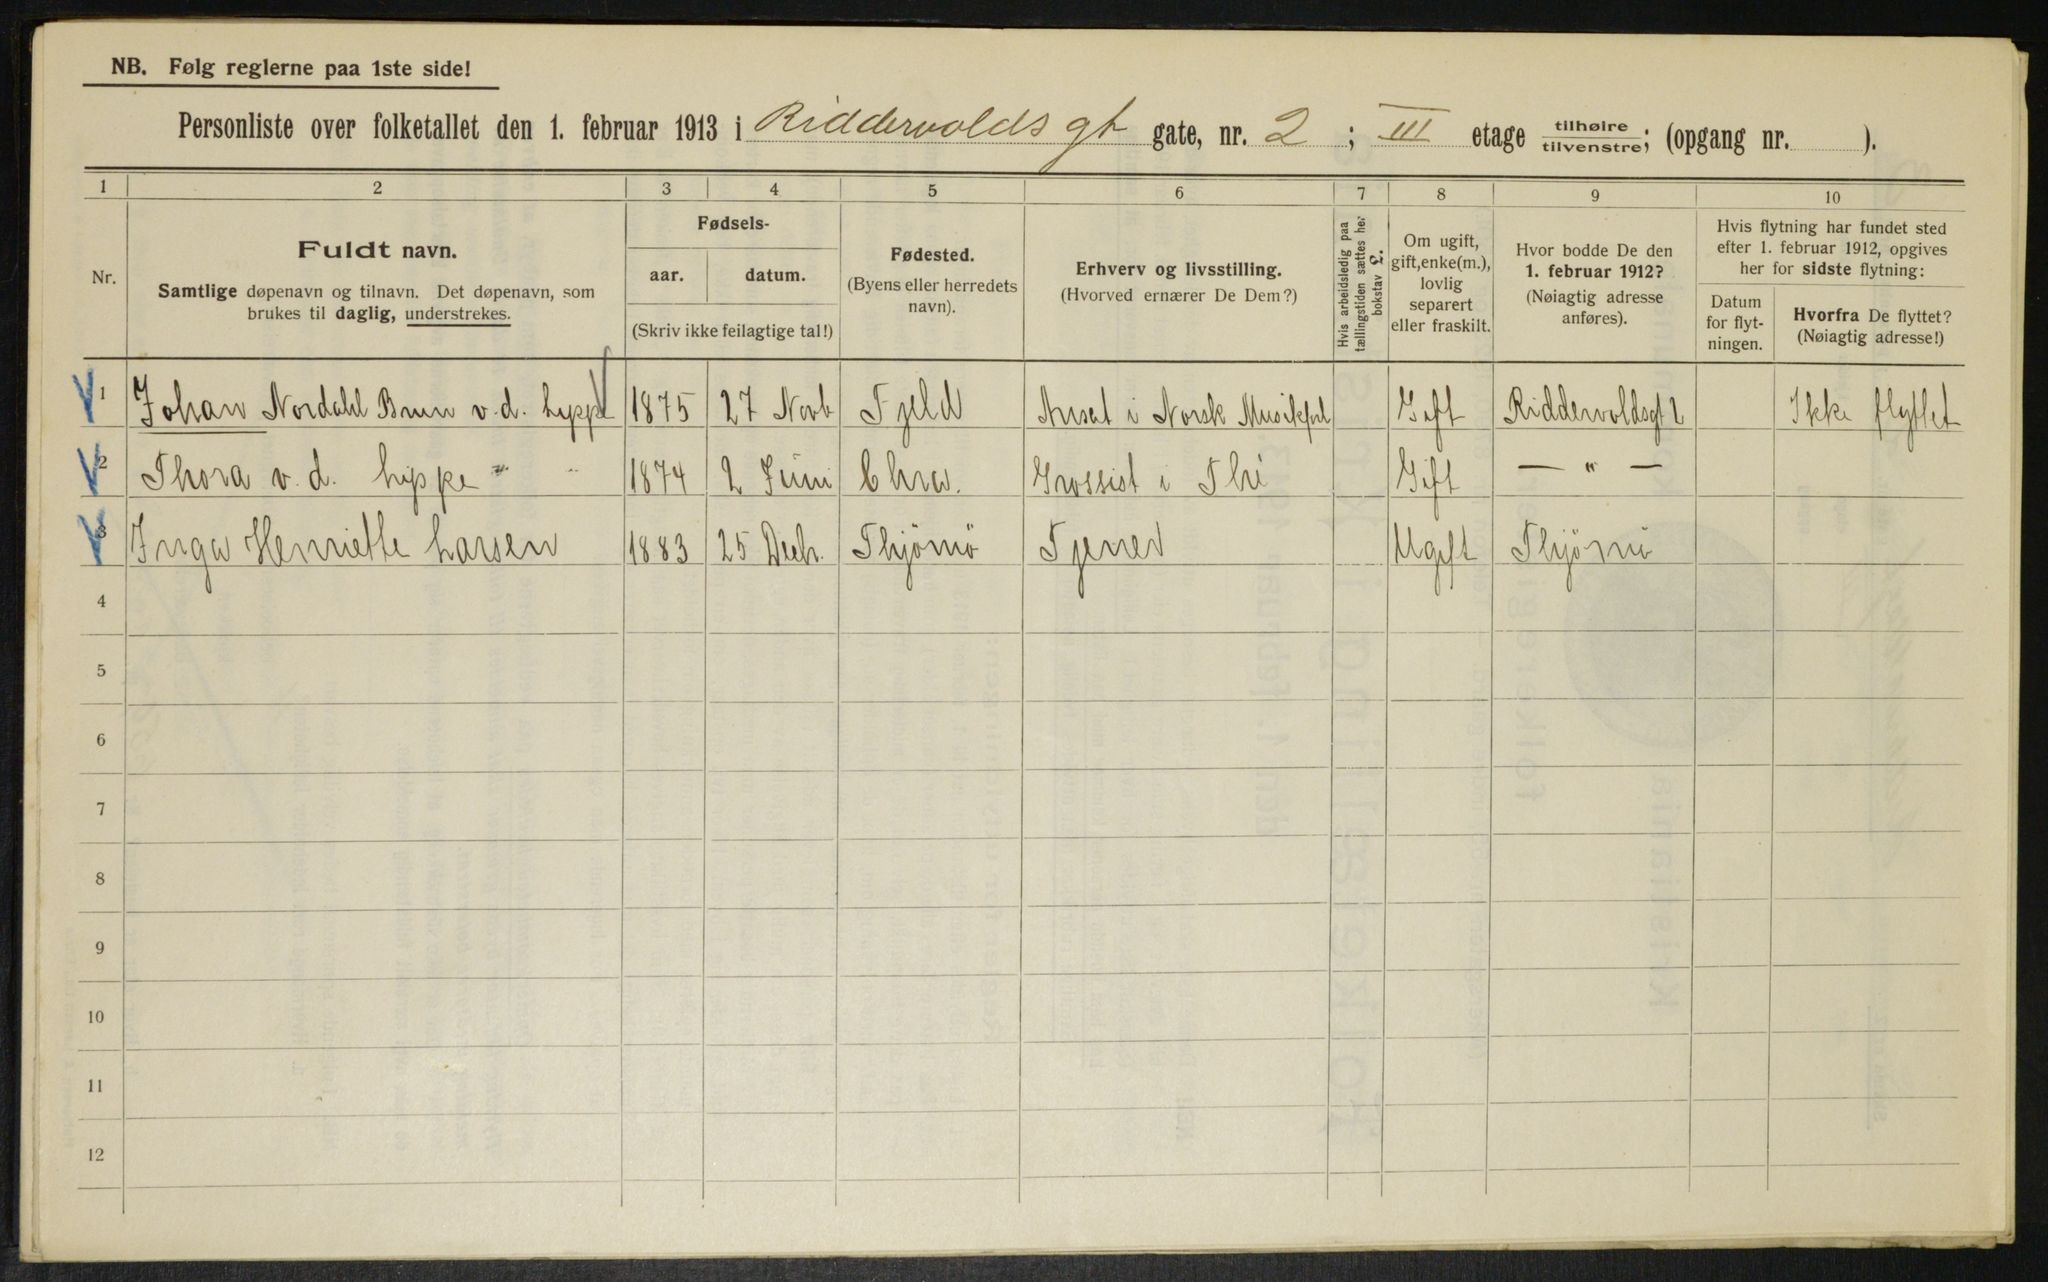 NB. Følg reglerne paa 1ste side!
Personliste over folketallet den 1. februar 1913 i Riddervolds gt gate, nr. 2 ; III etage tilhøire tilvenstre; (opgang nr. ).
1 2 3 4 5 6 7 8 9 10
Nr.
Fuldt navn.
Samtlige døpenavn og tilnavn. Det døpenavn, som
brukes til daglig, understrekes.
Fødsels-
aar. datum.
(Skriv ikke feilagtige tal!)
Fødested.
(Byens eller herredets
navn).
Erhverv og livsstilling.
(Hvorved ernærer De Dem?)
Hvis arbeidsledig paa
tællingstiden sættes her
bokstav L.
Om ugift,
gift, enke(m.),
lovlig
separert
eller fraskilt.
Hvor bodde De den
1. februar 1912?
(Nøiagtig adresse
anføres).
Hvis flytning har fundet sted
efter 1. februar 1912, opgives
her for sidste flytning:
Datum
for flyt-
ningen.
Hvorfra De flyttet?
(Nøiagtig adresse!)
1 Johan Nordahl Brun v.d. Lippe 1875 27 Novb Fjeld Ansat i Norsk Musikforl Gift Riddervoldsgt 2 Ikke flyttet
2 Thora v. d. Lippe " " 1874 2 Juni Chra. Grossist i Thé Gift — " —
3 Inga Henriette Larsen 1883 25 Decb. Thjömö Tjener Ugift Thjömö
4
5
6
7
8
9
10
11
12